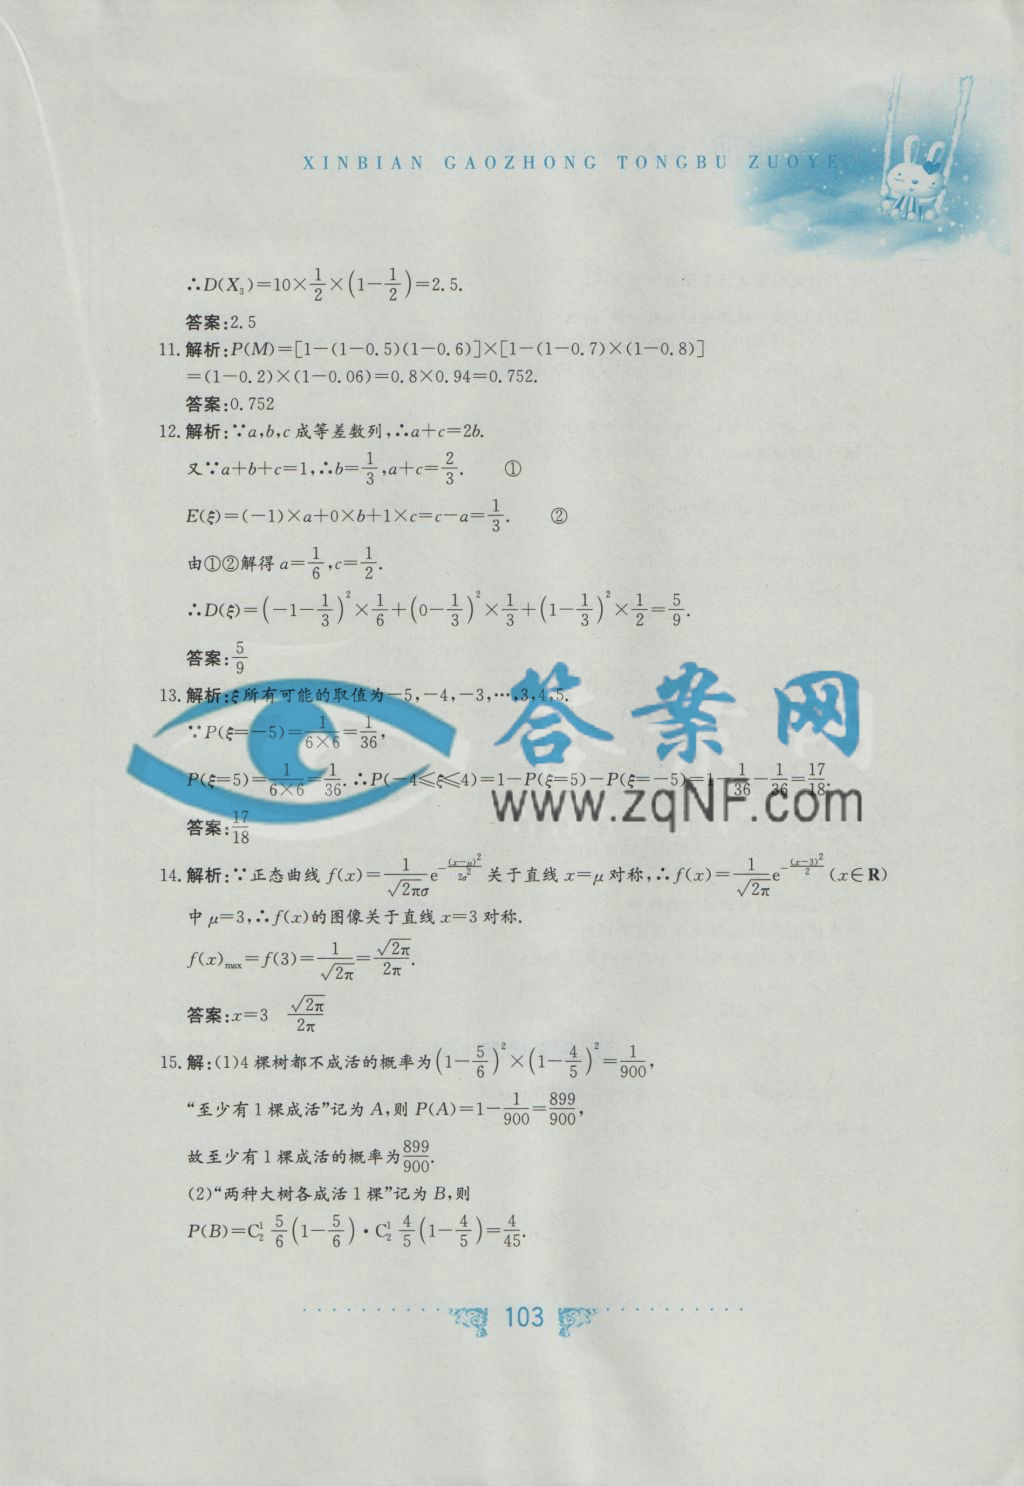 XINBIAN GAOZHONG TONGBU ZUOYE
∴D(X₃)=10×1/2×(1-1/2)=2.5.
答案:2.5
11.解析:P(M)=[1-(1-0.5)(1-0.6)]×[1-(1-0.7)×(1-0.8)]
=(1-0.2)×(1-0.06)=0.8×0.94=0.752.
答案:0.752
12.解析:∵a,b,c成等差数列,∴a+c=2b.
又∵a+b+c=1,∴b=1/3,a+c=2/3. ①
E(ξ)=(-1)×a+0×b+1×c=c-a=1/3. ②
由①②解得a=1/6,c=1/2.
∴D(ξ)=(-1-1/3)²×1/6+(0-1/3)²×1/3+(1-1/3)²×1/2=5/9.
答案:5/9
13.解析:ξ所有可能的取值为-5,-4,-3,…,3,4,5.
∵P(ξ=-5)=1/(6×6)=1/36,
P(ξ=5)=1/(6×6)=1/36.∴P(-4≤ξ≤4)=1-P(ξ=5)-P(ξ=-5)=1-1/36-1/36=17/18.
答案:17/18
答案网
www.zqNF.com
14.解析:∵正态曲线f(x)=1/(√2πσ)e^(-(x-μ)²/2σ²)关于直线x=μ对称,∴f(x)=1/√2π e^(-(x-3)²/2)(x∈R)
中μ=3,∴f(x)的图像关于直线x=3对称.
f(x)max=f(3)=1/√2π=√2π/2π.
答案:x=3 √2π/2π
15.解:(1)4棵树都不成活的概率为(1-5/6)²×(1-4/5)²=1/900,
“至少有1棵成活”记为A,则P(A)=1-1/900=899/900,
故至少有1棵成活的概率为899/900.
(2)“两种大树各成活1棵”记为B,则
P(B)=C₂¹ 5/6(1-5/6)·C₂¹ 4/5(1-4/5)=4/45.
103